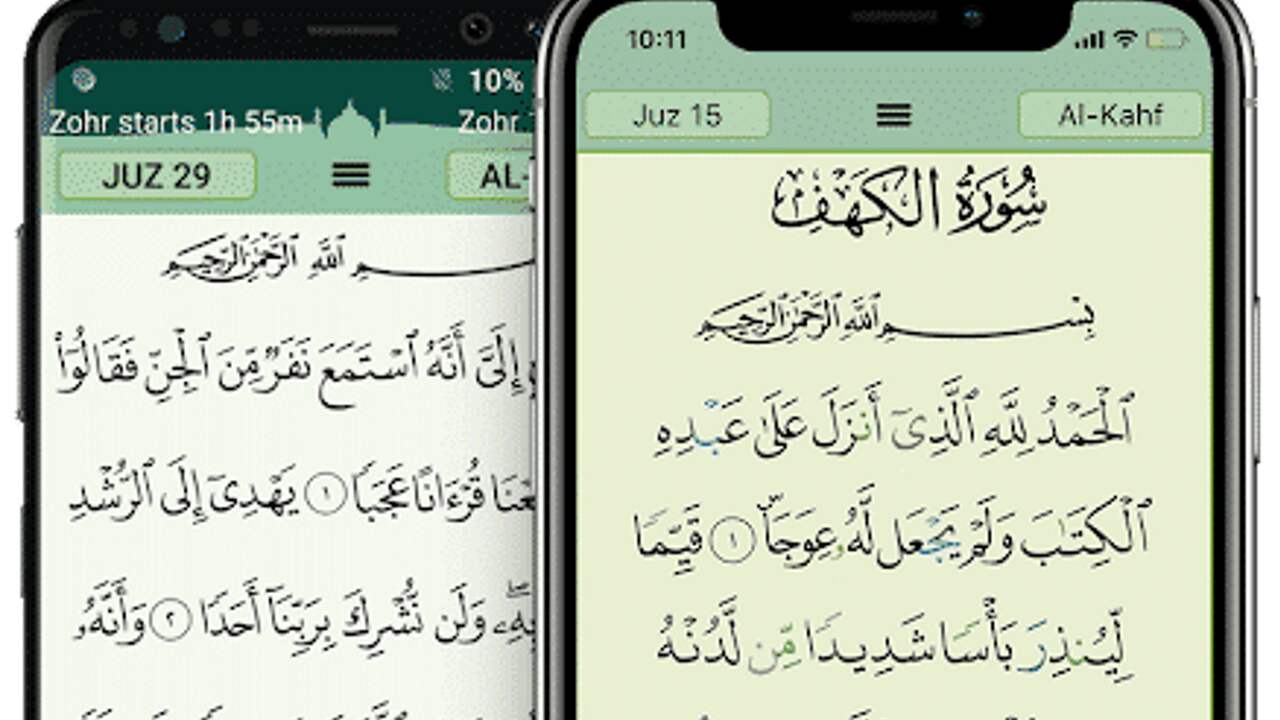 10%
Zohr starts 1h 55m
Zohr
JUZ 29
AL-
ـسـمِ ٱللَّهِ ٱلرَّحْمَٰنِ ٱلرَّحِيمِ
إِلَىَّ أَنَّهُ ٱسْتَمَعَ نَفَرٌ مِّنَ ٱلْجِنِّ فَقَالُوٓا۟
عْنَا قُرْءَانًا عَجَبًا ١ يَهْدِىٓ إِلَى ٱلرُّشْدِ
بِهِۦ ۖ وَلَن نُّشْرِكَ بِرَبِّنَآ أَحَدًا ٢ وَأَنَّهُۥ
10:11
Juz 15
Al-Kahf
سُورَةُ الكَهْفِ
بِسْمِ ٱللَّهِ ٱلرَّحْمَٰنِ ٱلرَّحِيمِ
ٱلْحَمْدُ لِلَّهِ ٱلَّذِىٓ أَنزَلَ عَلَىٰ عَبْدِهِ
ٱلْكِتَٰبَ وَلَمْ يَجْعَل لَّهُۥ عِوَجَاۜ ١ قَيِّمًا
لِّيُنذِرَ بَأْسًا شَدِيدًا مِّن لَّدُنْهُ